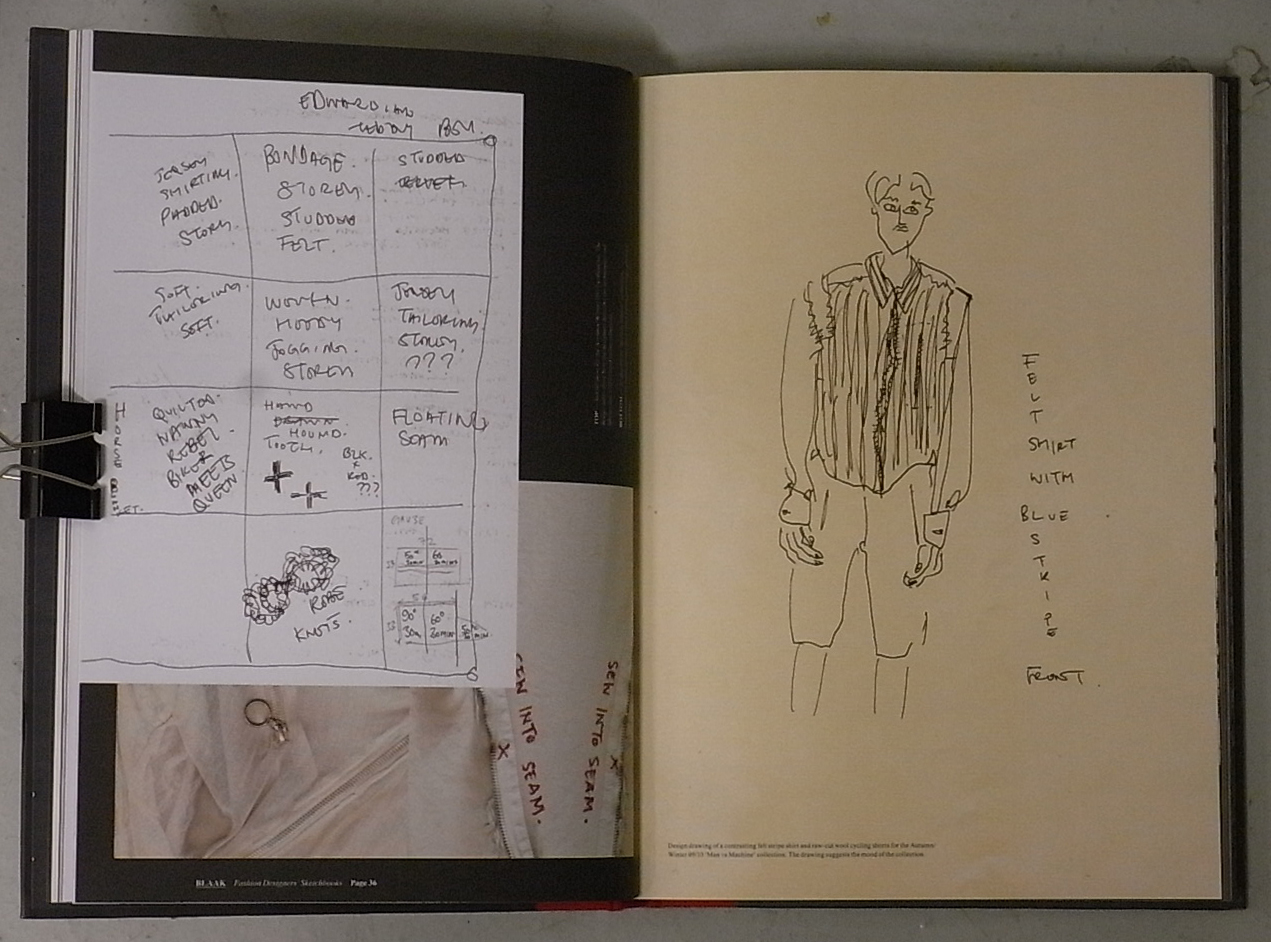 EDWARDIAN
BOY.
JERSEY
SHIRTING.
PADDED.
STORY.
BONDAGE.
STOREY.
STUDDED
FELT.
STUDDED
SOFT.
TAILORING.
SOFT.
WOVEN.
HOODY
JOGGING.
STOREY
JERSEY
TAILORING
STOREY.
???
HORSE
QUILTED.
NANNY
REBEL.
BIKER
MEETS
QUEEN
HAND
DRAWN
HOUND.
TOOTH.
BLK.
+
RED.
???
FLOATING
SEAM
ROBE
KNOTS.
GAUSE
72
50°
60
54
90°
30m
60°
20MIN
SEW INTO SEAM.
X
SEW INTO SEAM.
X
BLAAK Fashion Designers' Sketchbooks Page 36
FELT
SHIRT
WITH
BLUE
STRIPE
FRONT.
Design drawing of a contrasting felt stripe shirt and raw-cut wool cycling shorts for the Autumn/
Winter 09/10 'Man vs Machine' collection. The drawing suggests the mood of the collection.